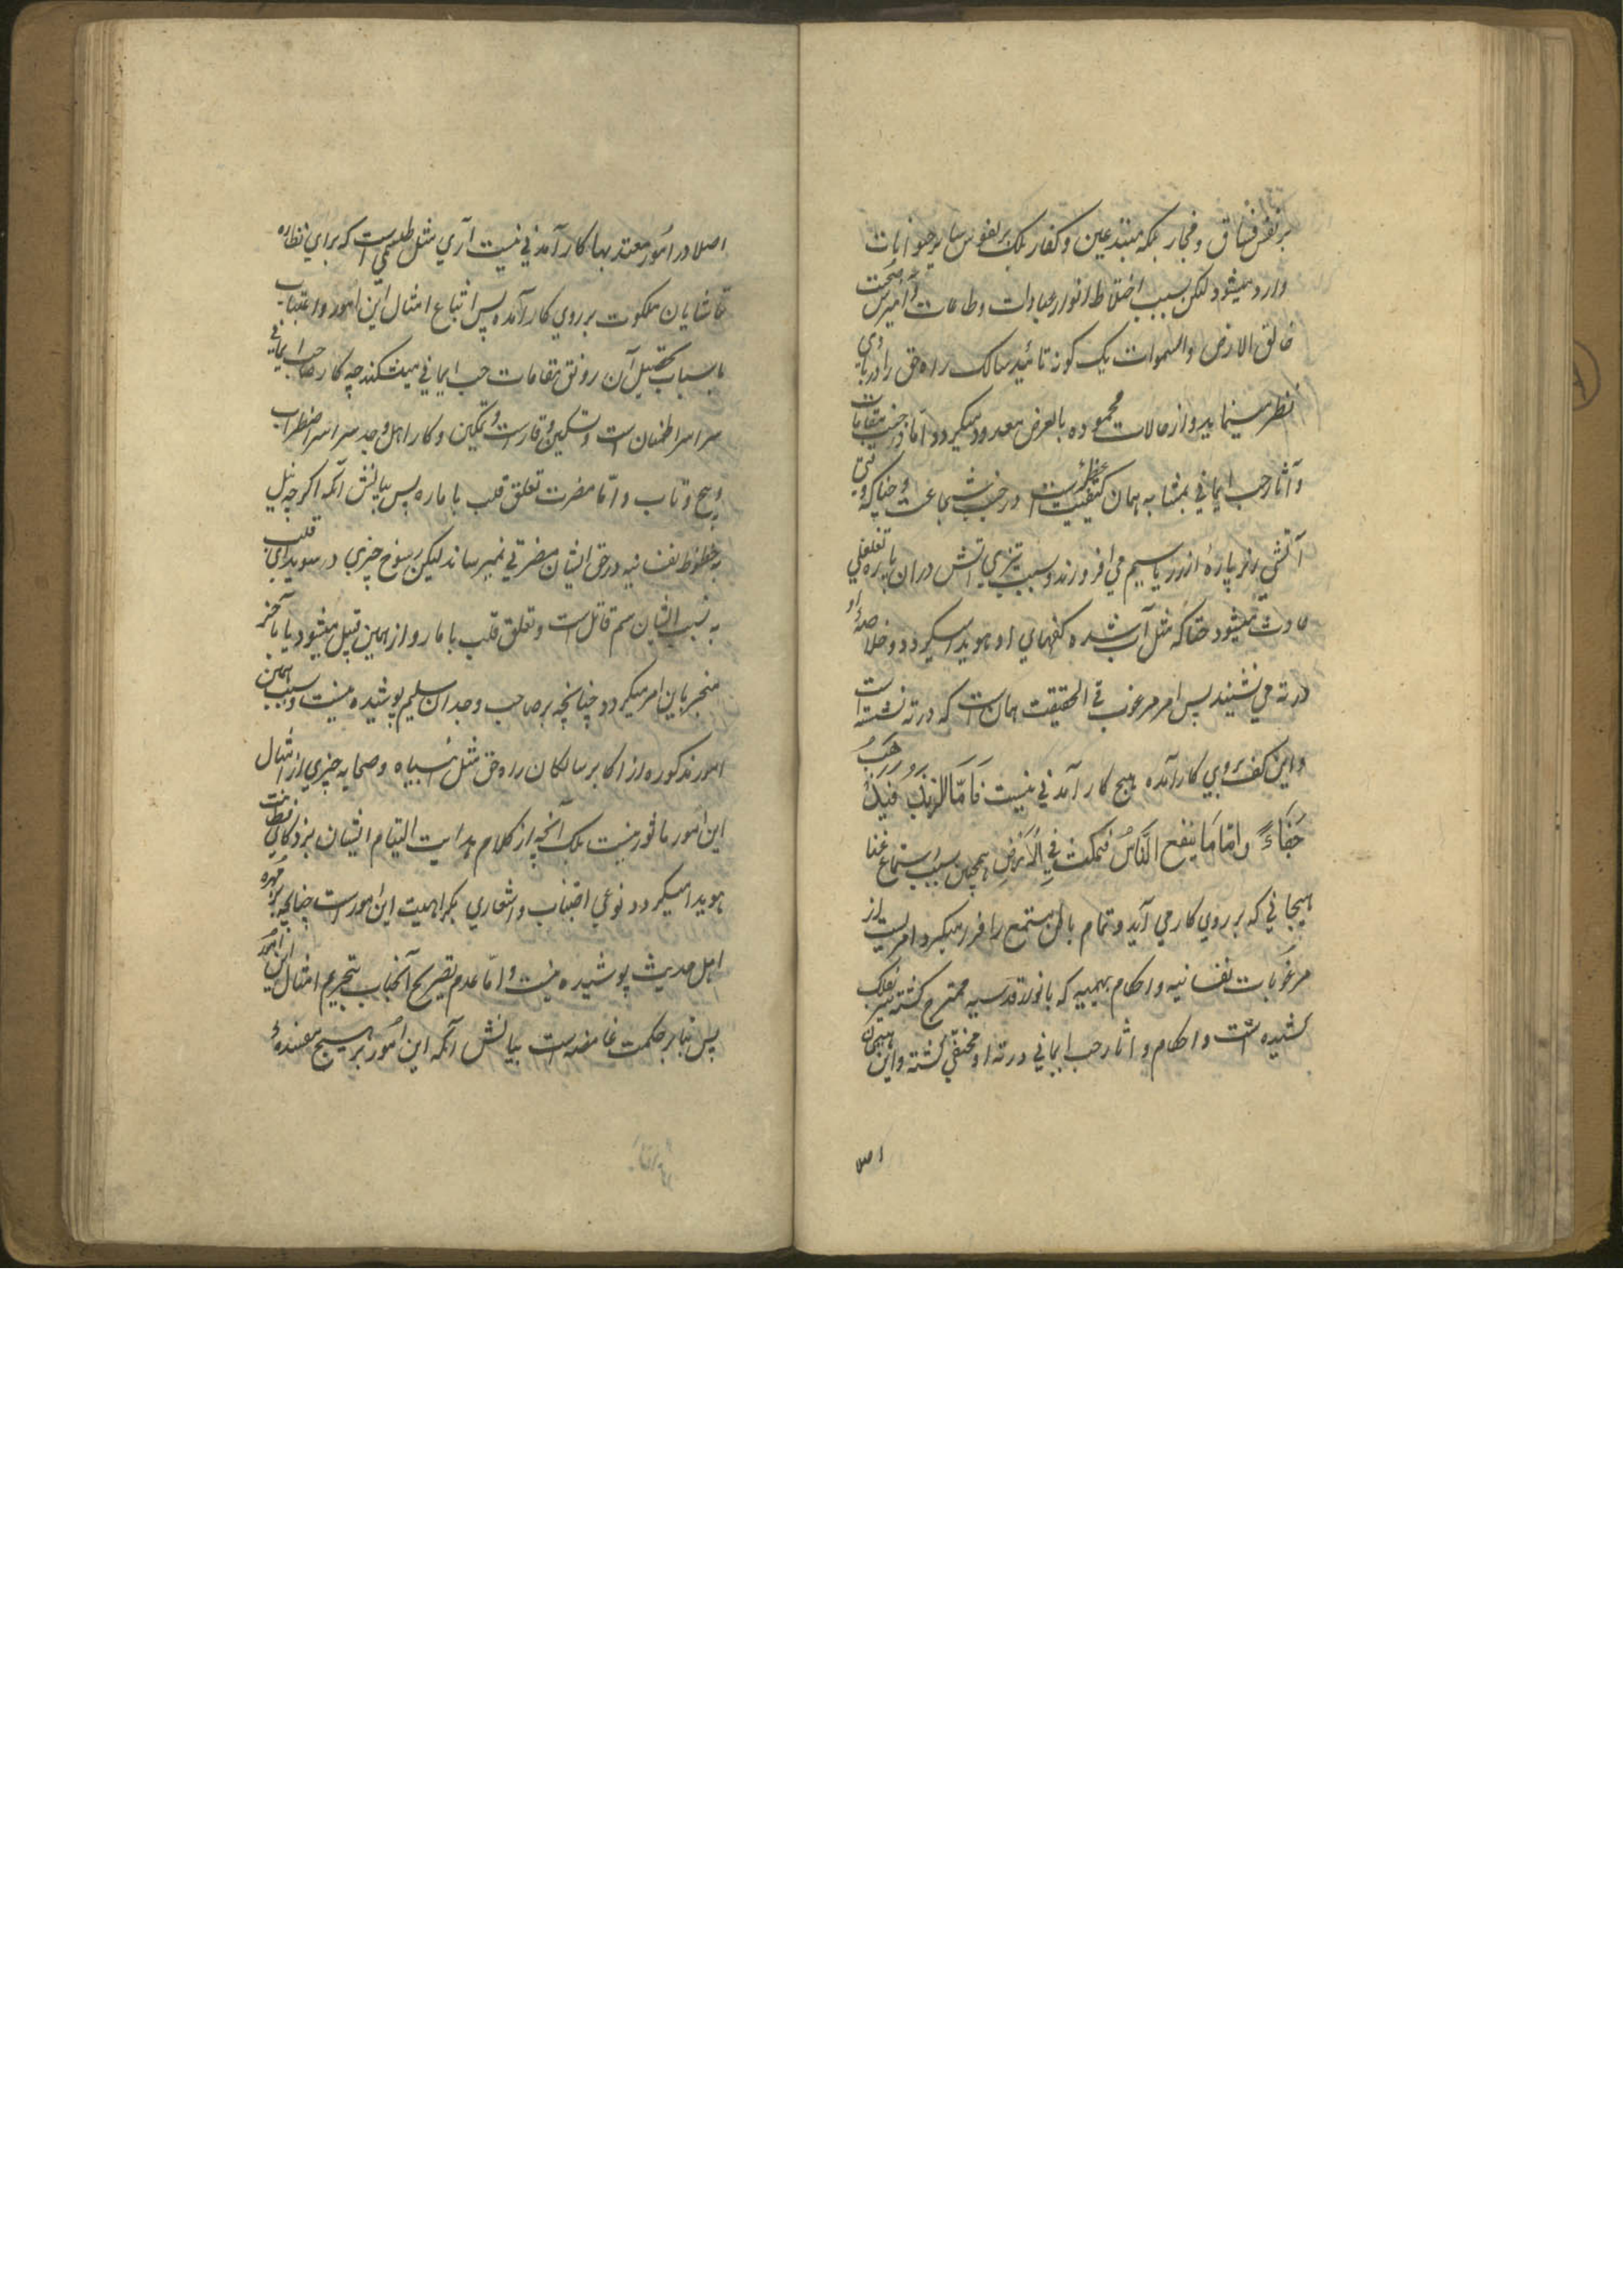 بر نفس فساق و فجار بلکه مبتدعین و کفار بلک بر نفوس سایر حیوانات
وارد میشود لکن بسبب اختلاط انوار عبادات و طاعات و آمیزش صحبت
خالق الارض والسموات یک کونه تائید سالک راه حق را در بادی
نظر مینماید و از حالات محموده بالعرض معدود میکردد اما در جنب مقامات
و آثار حب ایمانی بمثابه همان کیفیت است در جنب شجاعت و چنانکه وقتی
آتشی زیر پارهٔ از زر یا سیم می افروزند و بسبب تیزی آتش دران پاره تغلغلی
حادث میشود حتا که مثل آب شده کفهای او هویدا میکردد و خلاصهٔ او
در ته می نشیند پس امر مرغوب فی الحقیقت همان است که در ته نشسته است
و این کف بروی کار آمده هیچ کار آمدنی نیست فَاَمّا الزبَدُ فَیَذهَبُ
جُفَاءً وامّا مَا ینفع النّاسَ فیمکث فِي الْاَرْضِ همچنین بسبب استماع غنا
هیجانی که بر روی کار می آید و تمام باطن مستمع را فرو میکیرد امریست از
مرغوبات نفسانیه و احکام بهیمیه که بانوار قدسیه ممتزج کشته سر بفلک
کشیده است و احکام و آثار حب ایمانی در ته او مختفی کشته و این هیجان
اصلا
اصلا در امور معتد بها کار آمدنی نیست آری مثل طلسمی است که برای نظاره
تماشایان ملکوت بر روی کار آمده پس اتباع امثال این امور و اعتناء
باسباب تحصیل آن رونق مقامات حب ایمانی میشکند چه کار صاحب حب ایمانی
سراسر اطمینان است و تسکین و وقار است و تمکین و کار اهل وجد سراسر اضطراب
و پیچ و تاب و امّا مضرت تعلق قلب با مارد پس بیانش آنکه اکرچه نیل
بحظوظ نفسانیه در حق ایشان مضرتی نمیرساند لیکن رسوخ چیزی در سویدای قلب
به نسبت ایشان سم قاتل است و تعلق قلب با مارد از همین قبیل میشود یا بآخر
منجر باین امر میکردد چنانچه بر صاحب وجدان سلیم پوشیده نیست و بسبب همین
امور مذکوره از اکابر سالکان راه حق مثل انبیاه و صحابه چیزی از امثال
این امور ماثور نیست بلک آنچه از کلام هدایت التیام ایشان بنزد کمال فطنت
هویدا میکردد نوعی اجتناب و اشعاری بکراهیت این امور است چنانچه بر مهره
اهل حدیث پوشیده نیست و امّا عدم تصریح آنجناب بتحریم امثال این امور
پس بنابر حکمت غامضه است بیانش آنکه این امور بر هیچ مفسدهٔ